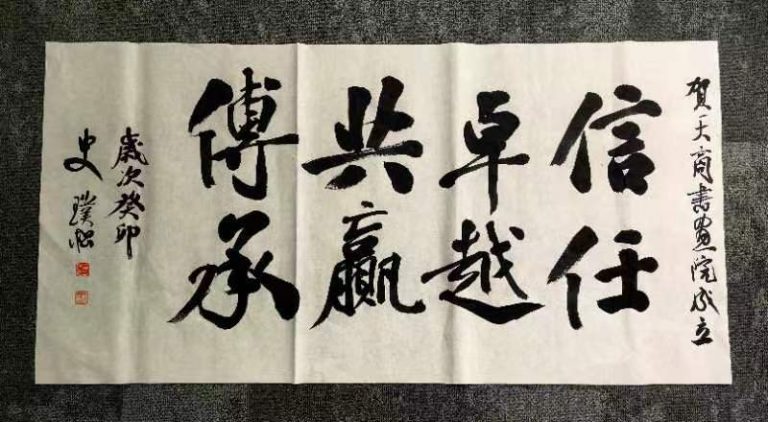 賀天商書畫院成立
信任
卓越
共赢
傳承
歲次癸卯
史璞松